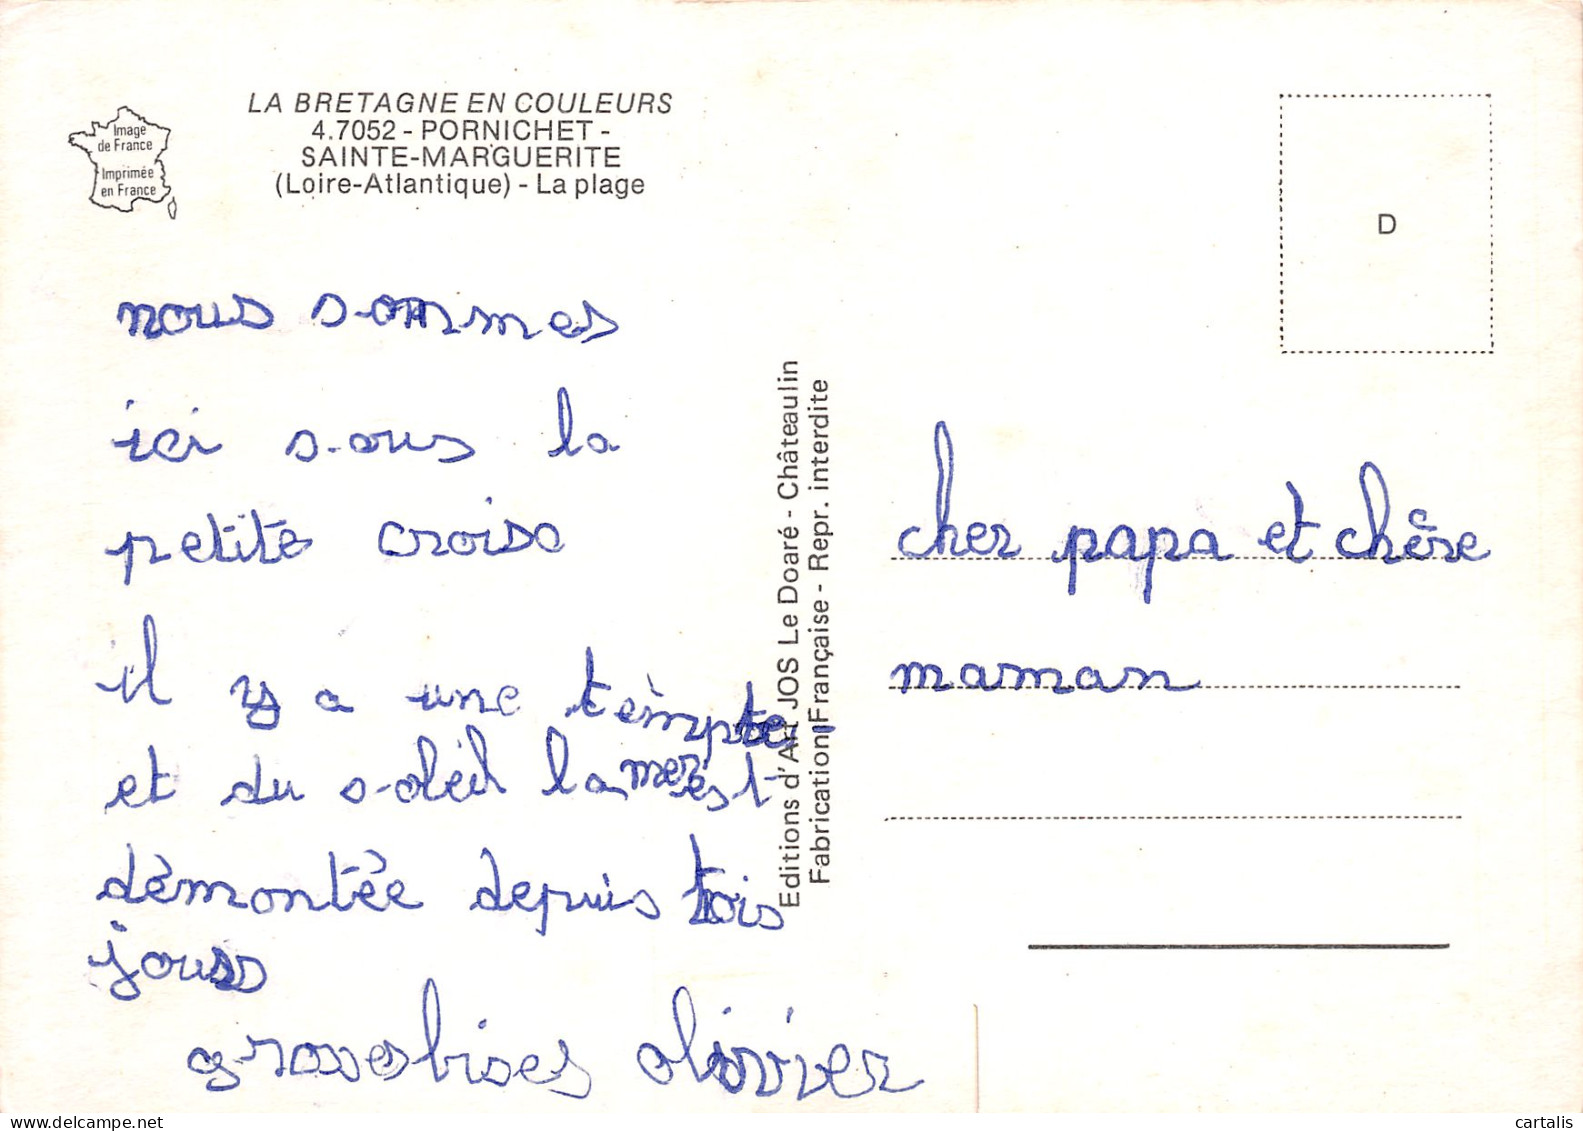 Image
de France
Imprimée
en France
LA BRETAGNE EN COULEURS
4.7052 - PORNICHET -
SAINTE-MARGUERITE
(Loire-Atlantique) - La plage
D
nous sommes
ici sous la
petite croise
il y a une tempte
et du soleil la mer est
démontée depuis trois
jours
grosse bises olivier
Editions d'Art JOS Le Doaré - Châteaulin
Fabrication Française - Repr. interdite
cher papa et chère
maman
cartalis